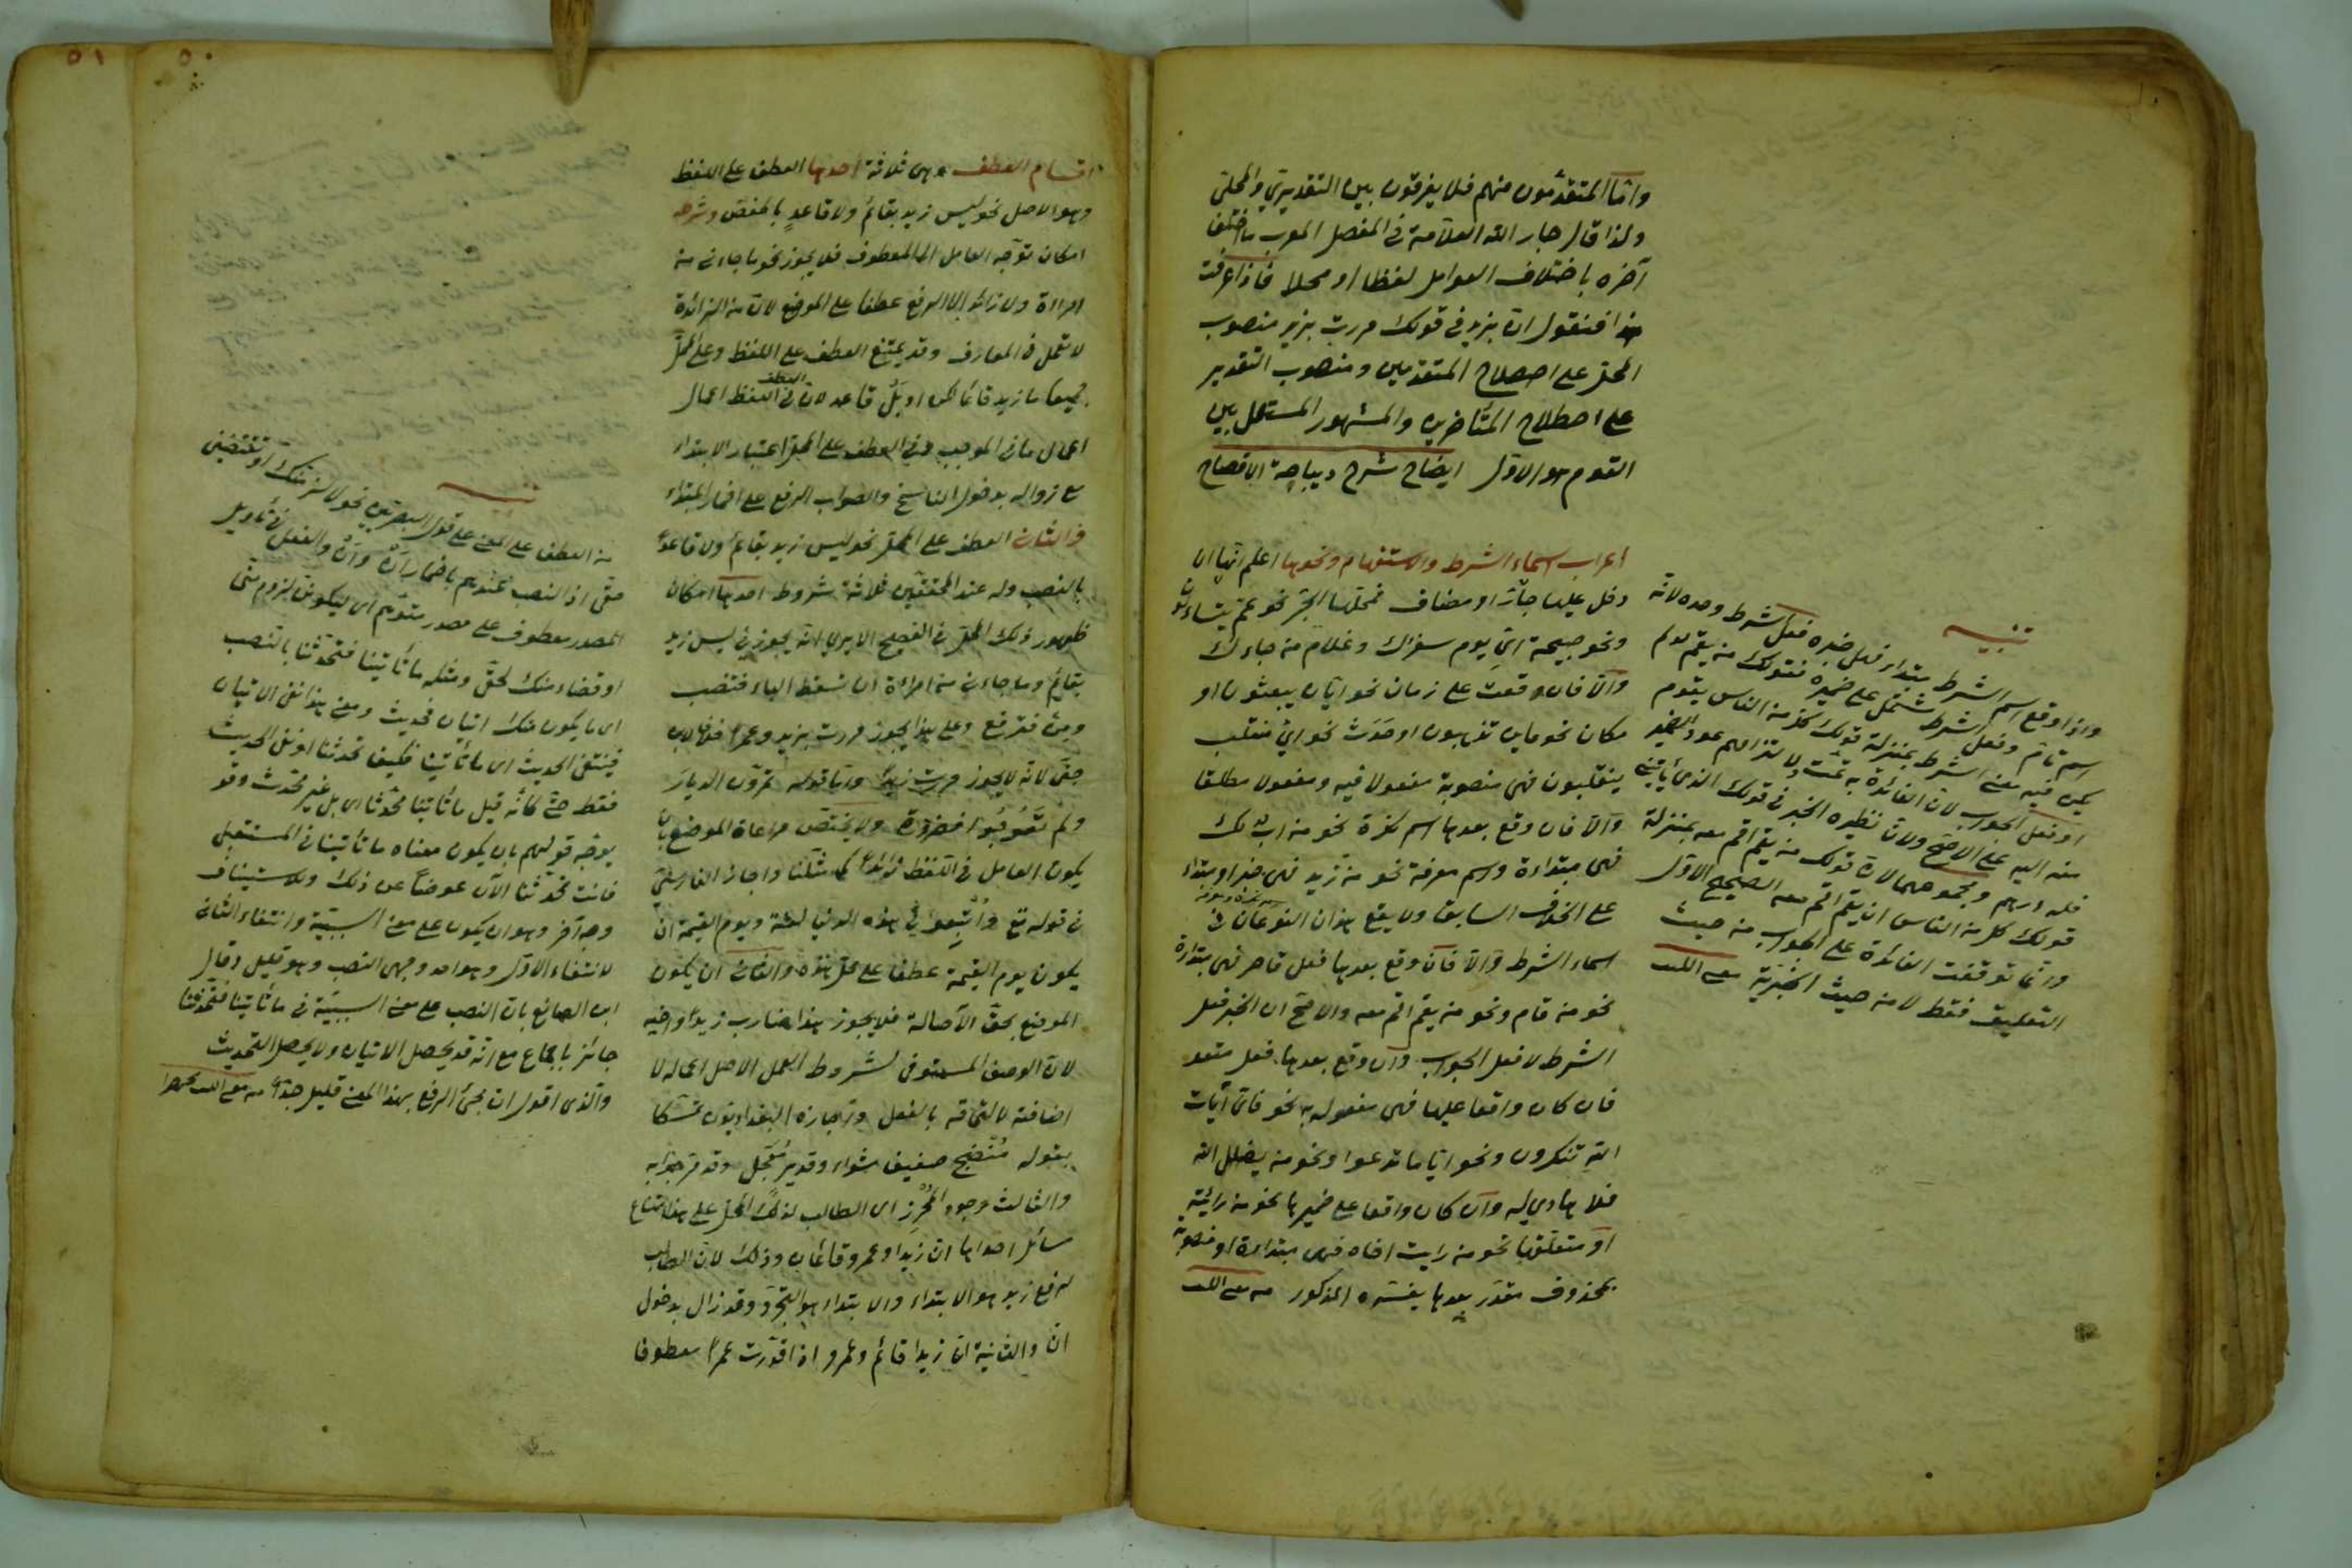 وامّا المتقدّمون منهم فلا يفرقون بين التقديريّ والمحلّي
ولذا قال جار الله العلّامة في المفصل المعرب ما اختلف
آخره باختلاف العوامل لفظا او محلا فاذا عرفت
هذا فنقول ان بزيد في قولك مررت بزيد منصوب
المحل على اصطلاح المتقدمين ومنصوب التقدير
على اصطلاح المتأخرين والمشهور المستعمل بين
القوم هو الاوّل ايضاح شرح ديباجة الافصاح
اعراب اسماء الشرط والاستفهام ونحوها اعلم انّها ان
دخل عليها جارّ او مضاف فمحلّها الجرّ نحو عمّ يتساءلون
ونحو صبيحة ايّ يوم سفرك وغلام من جاءك
والّا فان وقعت على زمان نحو ايّان يبعثون او
مكان نحو فاين تذهبون او حدث نحو ايّ منقلب
ينقلبون فهي منصوبة مفعولا فيه ومفعولا مطلقا
والّا فان وقع بعدها اسم نكرة نحو من اب لك
فهي مبتداءة واسم معرفة نحو من زيد فهي خبر او مبتداء
على الخلاف السابق ولا يقع هذان النوعان في
اسماء الشرط والّا فان وقع بعدها فعل قاصر فهي مبتداءة
نحو من قام ونحو من يقم اقم معه والاصحّ ان الخبر فعل
الشرط لا فعل الجواب وان وقع بعدها فعل متعد
فان كان واقعا عليها فهي مفعول به نحو فايّ آيات
الله تنكرون ونحو ايّا ما تدعوا ونحو من يضلل الله
فلا هادي له وان كان واقعا على ضميرها نحو من رأيته
او متعلّقها نحو من رايت اخاه فهي مبتداءة او منصوبة
بمحذوف مقدّر بعدها يفسّره المذكور من مغني اللب
تنبيه
واذا وقع اسم الشرط مبتداء فهل خبره فعل الشرط وحده لانه
اسم تامّ وفعل الشرط مشتمل على ضميره فقولك من يقم لو لم
يكن فيه معنى الشرط بمنزلة قولك كل من الناس يقوم
او فعل الجواب لان الفائدة به تمّت ولالتزامهم عود الضمير
منه اليه على الاصحّ ولان نظيره الخبر في قولك الذي يأتيني
فله درهم او مجموعهما لان قولك من يقم اقم معه بمنزلة
قولك كل من الناس ان يقم اقم معه الصحيح الاوّل
وانّما توقفت الفائدة على الجواب من حيث
التعليق فقط لا من حيث الخبريّة مغني اللب
٥٠
٥١
اقسام العطف وهي ثلاثة احدها العطف على اللفظ
وهو الاصل نحو ليس زيد بقائم ولا قاعدٍ بالخفض وشرطه
امكان توجّه العامل الى المعطوف فلا يجوز نحو ما جاءني من
امراءة ولا زيد الا الرفع عطفا على الموضع لان من الزائدة
لا تعمل في المعارف وقد يمتنع العطف على اللفظ وعلى المحلّ
جميعا ما زيد قائما لكن او بل قاعد لان في العطف على اللفظ اعمال
اعمال ما في الموجب وفي العطف على المحل اعتبار الابتداء
مع زواله بدخول الناسخ والصواب الرفع على اضمار المبتداء
والثاني العطف على المحل نحو ليس زيد بقائم ولا قاعداً
بالنصب وله عند المحققين ثلاثة شروط احدها امكان
ظهور ذلك المحل في الفصيح الا يرى انّه يجوز في ليس زيد
بقائم وما جاءني من امراءة ان تسقط الباء فتنصب
ومن فترفع وعلى هذا يجوز مررت بزيد وعمرا خلافا لابن
جنّي لانّه لا يجوز مررت زيداً وامّا قوله تمرّون الديار
ولم تعوجوا فضرورة ولا يختص مراعاة الموضع بان
يكون العامل في اللفظ زائدا كما مثّلنا واجاز الفارسيّ
في قوله تع وأُتبعوا في هذه الدنيا لعنة ويوم القيمة ان
يكون يوم القيمة عطفا على محل هذه والثاني ان يكون
الموضع بحقّ الاصالة فلا يجوز هذا ضارب زيداً واخيه
لان الوصف المستوفي لشروط العمل الاصل اعماله لا
اضافته لالتحاقه بالفعل واجازه البغداديّون تمسّكا
بقوله مُنضِج صفيف شواء وقدير مُعَجّل وقد مرّ جوابه
والثالث وجود المُحرِز اي الطالب لذلك المحل على هذا امتناع
مسائل احداها ان زيدا وعمرو قائمان وذلك لان الطالب
لرفع زيد هو الابتداء والابتداء هو التجرّد وقد زال بدخول
انّ والثانية ان زيدا قائم وعمرو اذا قدّرت عمرا معطوفا
تنبيه
من العطف على المعنى على قول البصريّين نحو لالزمنّك او تقضيني
حقّي اذ النصب عندهم باضمار ان وان والفعل في تأويل
المصدر معطوف على مصدر متوهّم اي ليكوننّ لزوم منّي
او قضاء منك لحقّي ومثله ما تأتينا فتحدّثنا بالنصب
اي ما يكون منك اتيان فحديث ومعنى هذا نفي الاتيان
فينتفي الحديث اي ما تأتينا فكيف تحدثنا او نفي الحديث
فقط حتّى كانّه قيل ما تأتينا محدّثا اي بل غير محدّث
يوجّه قولهم بان يكون معناه ما تأتينا في المستقبل
فانت تحدّثنا الآن عوضاً عن ذلك وللاستيناف
وجه آخر وهو ان يكون على معنى السببيّة وانتفاء الثاني
لانتفاء الاوّل وهو احد وجهي النصب وهو قليل وقال
ابن الصائغ بان النصب على معنى السببيّة في ما تأتينا فتحدّثنا
جائز باجماع مع انّه قد يحصل الاتيان ولا يحصل التحديث
والذي اقول ان مجيء الرفع بهذا المعنى قليل جدّا من مغني اللب